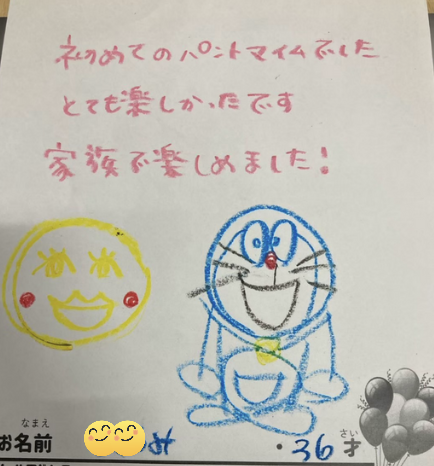 初めてのパントマイムでした
とても楽しかったです
家族で楽しめました!
なまえ
お名前 み
・36才
さい